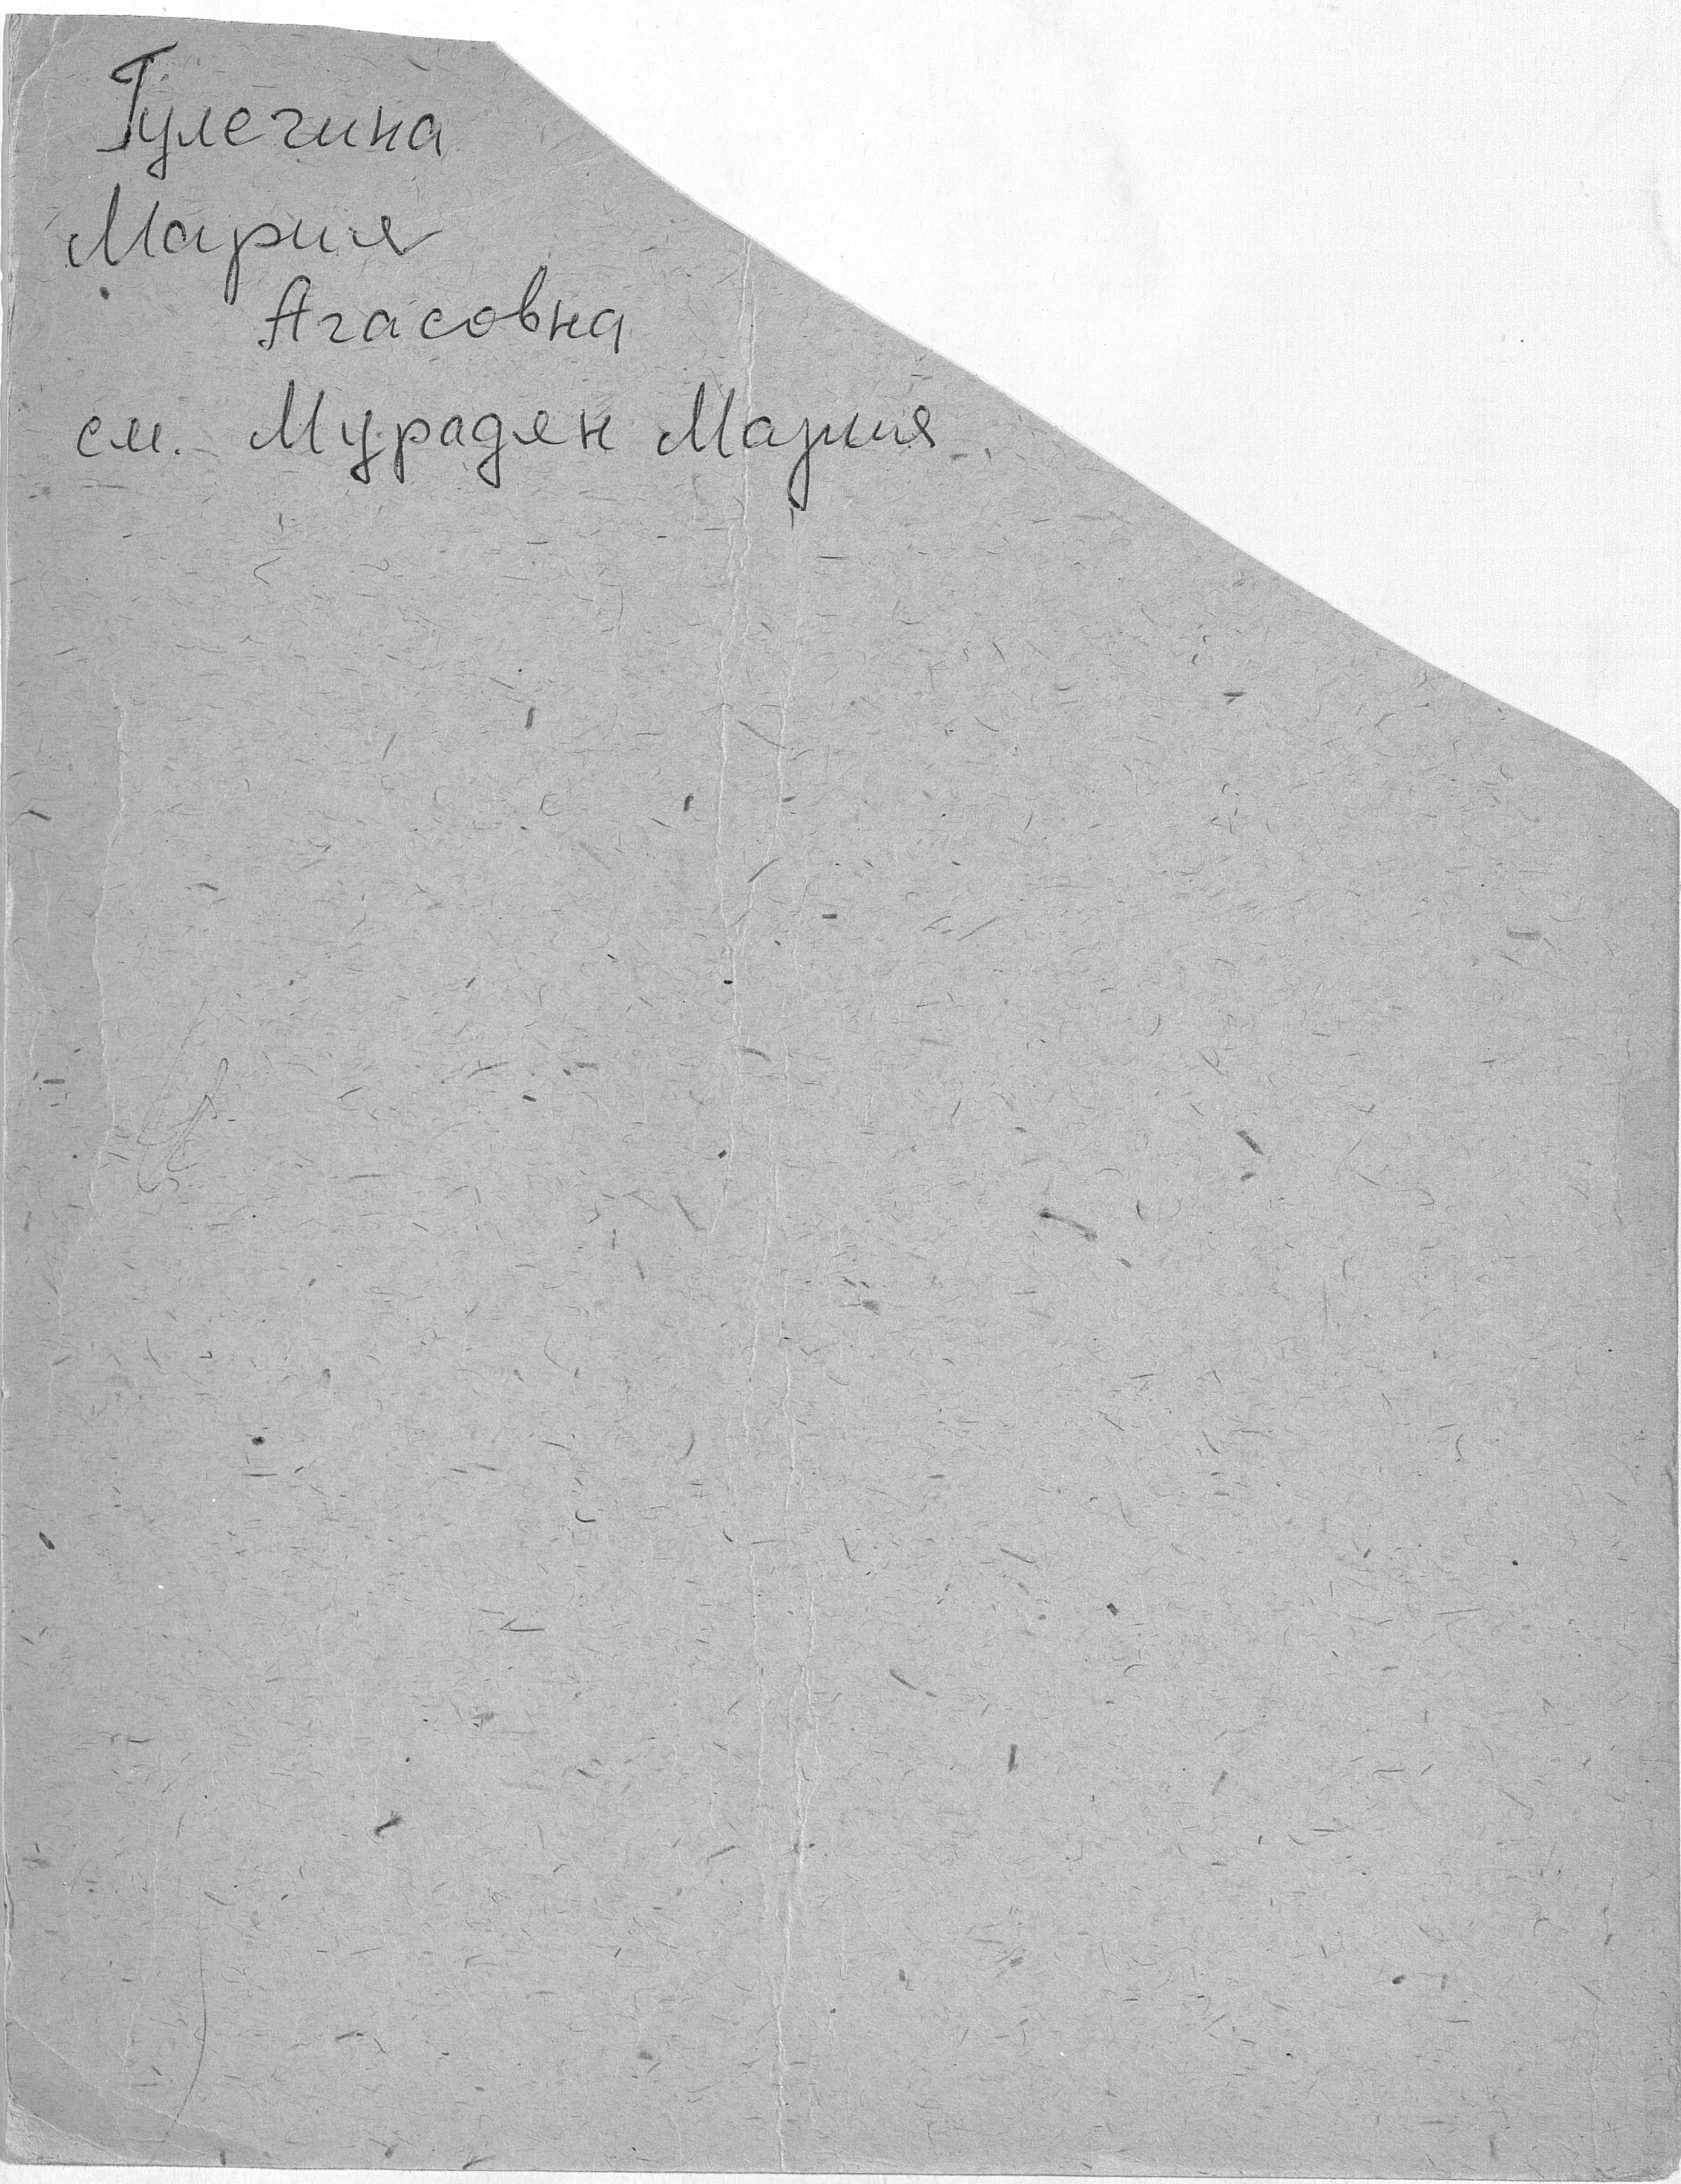 Гулегина
Мария
Агасовна
см. Мурадян Мария